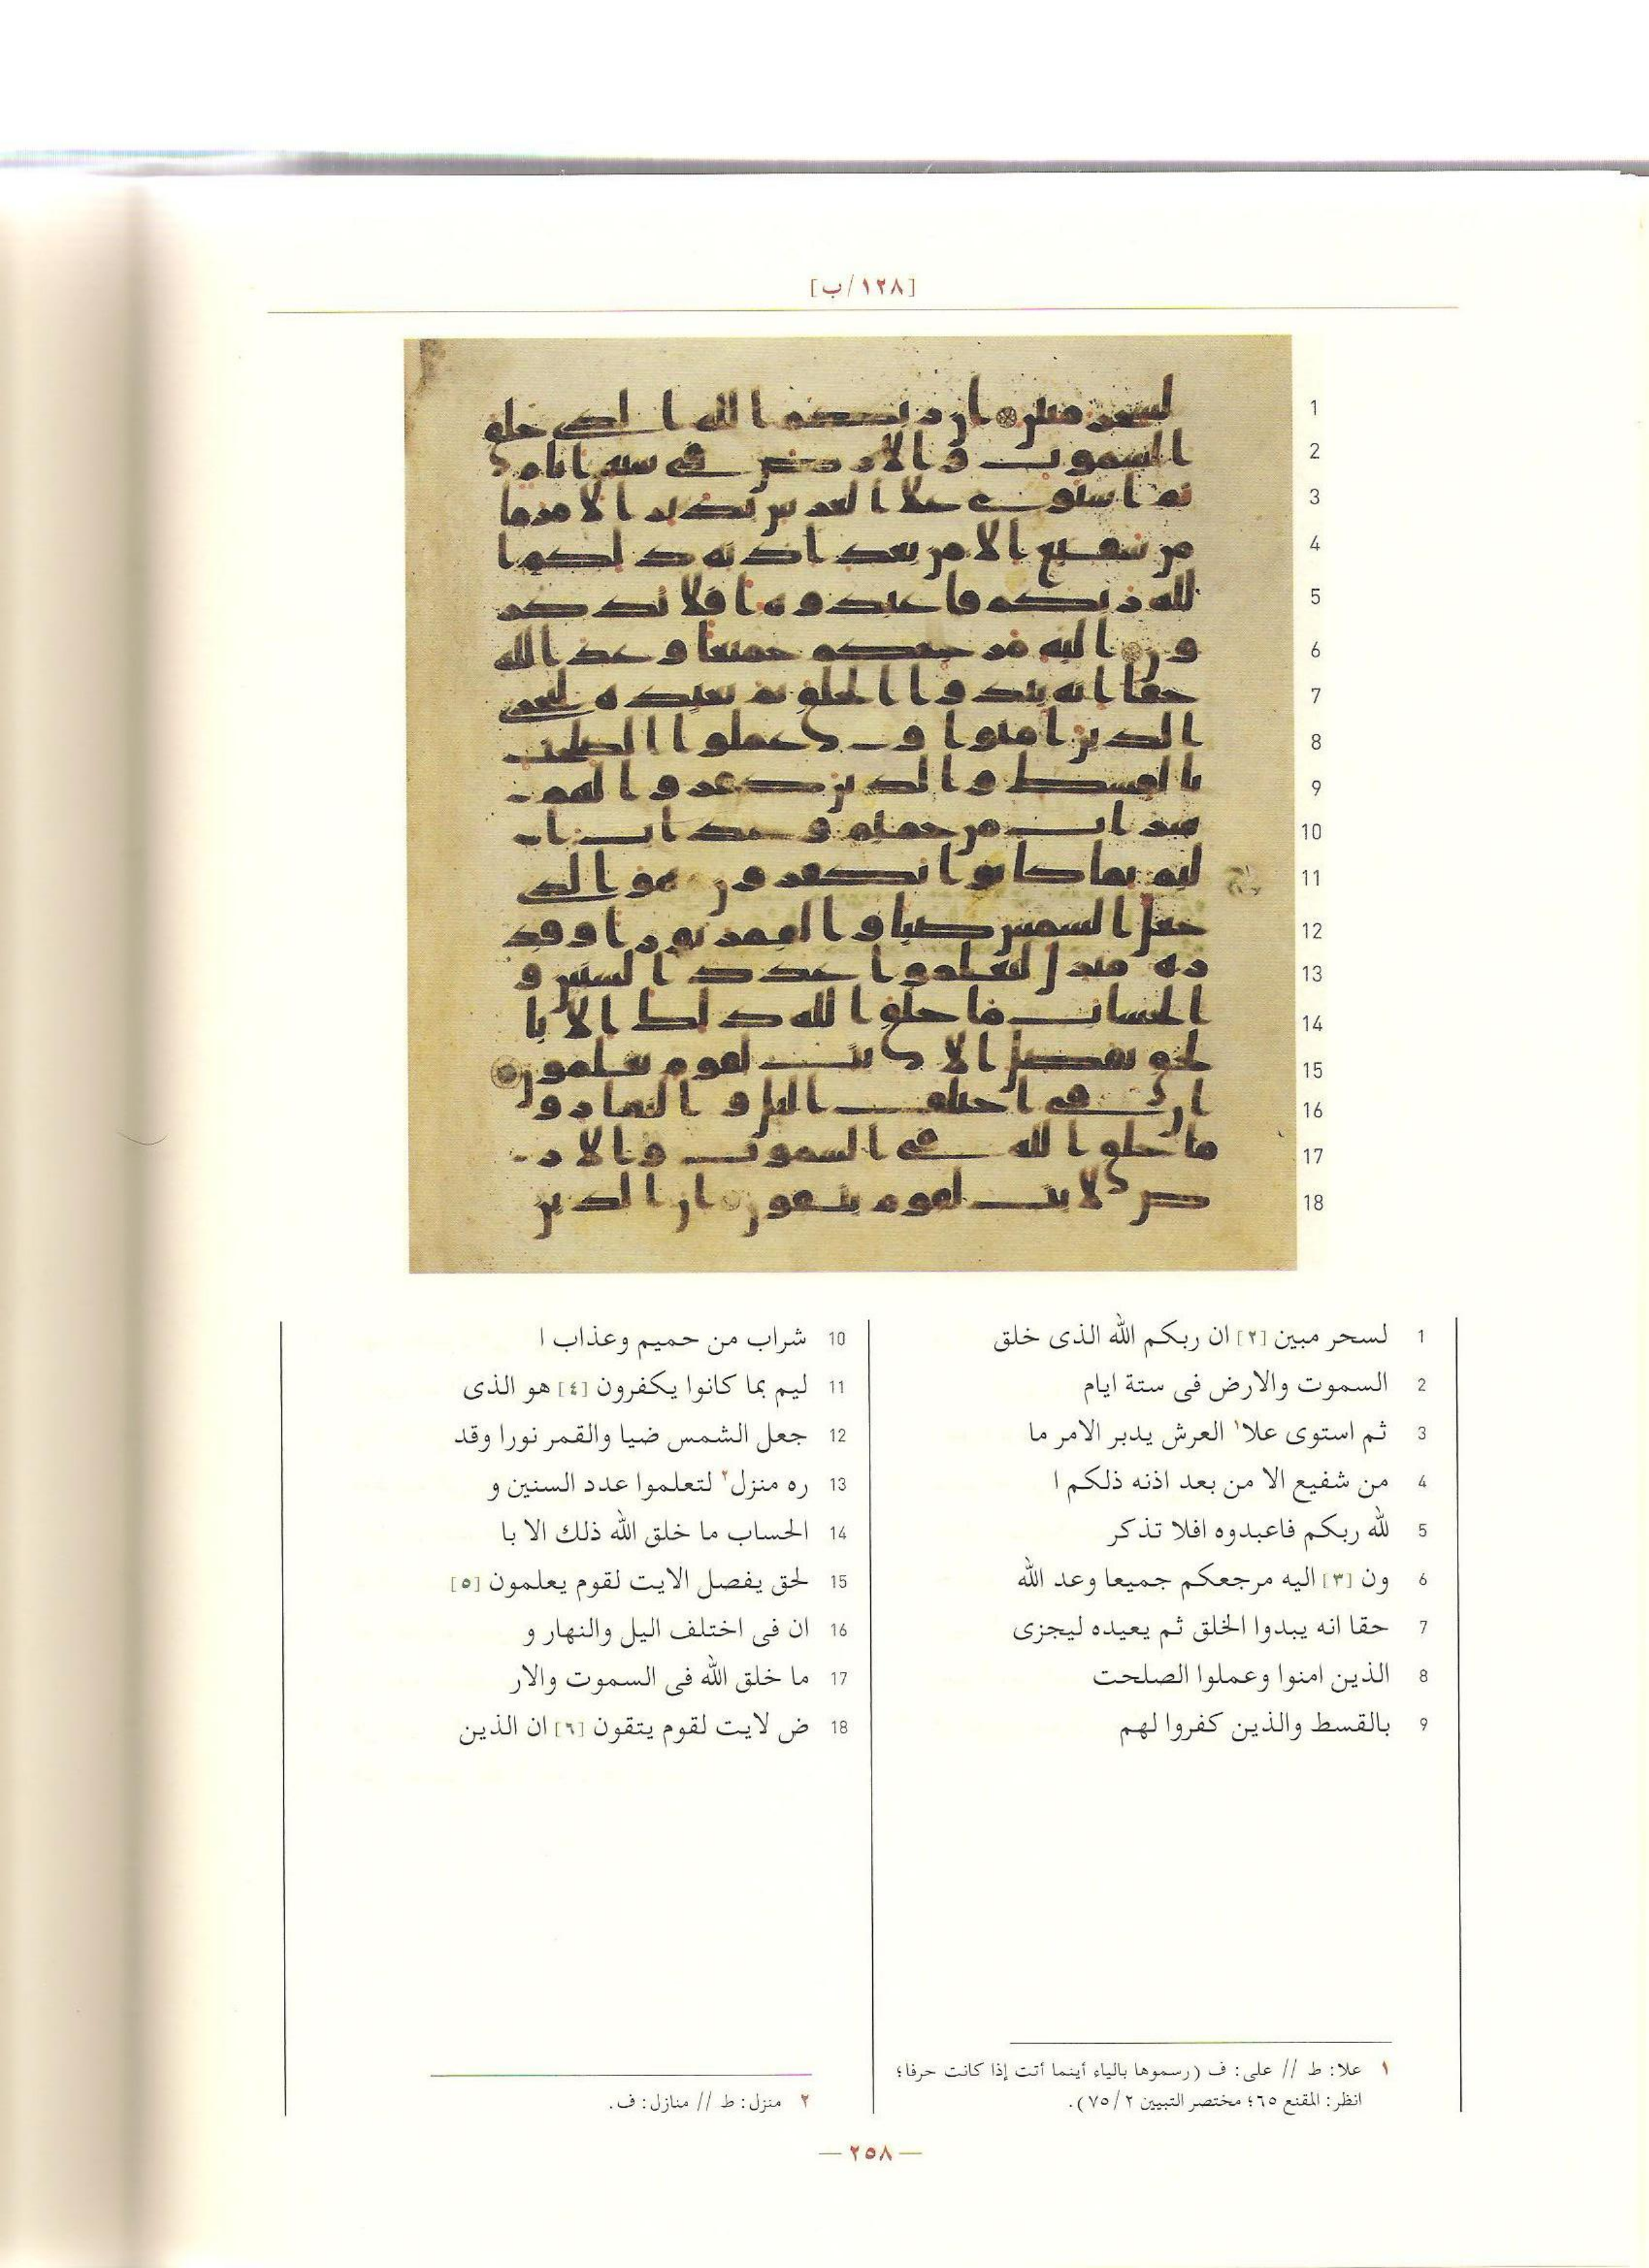 [١٢٨/ب]
1
2
3
4
5
6
7
8
9
10
11
12
13
14
15
16
17
18
1 لسحر مبين [٢] ان ربكم الله الذى خلق
2 السموت والارض فى ستة ايام
3 ثم استوى علا١ العرش يدبر الامر ما
4 من شفيع الا من بعد اذنه ذلكم ا
5 لله ربكم فاعبدوه افلا تذكر
6 ون [٣] اليه مرجعكم جميعا وعد الله
7 حقا انه يبدوا الخلق ثم يعيده ليجزى
8 الذين امنوا وعملوا الصلحت
9 بالقسط والذين كفروا لهم
10 شراب من حميم وعذاب ا
11 ليم بما كانوا يكفرون [٤] هو الذى
12 جعل الشمس ضيا والقمر نورا وقد
13 ره منزل٢ لتعلموا عدد السنين و
14 الحساب ما خلق الله ذلك الا با
15 لحق يفصل الايت لقوم يعلمون [٥]
16 ان فى اختلف اليل والنهار و
17 ما خلق الله فى السموت والار
18 ض لايت لقوم يتقون [٦] ان الذين
١ علا: ط // على: ف (رسموها بالياء أينما أتت إذا كانت حرفا؛
انظر: المقنع ٦٥؛ مختصر التبيين ٢/ ٧٥).
٢ منزل: ط // منازل: ف.
— ٢٥٨ —